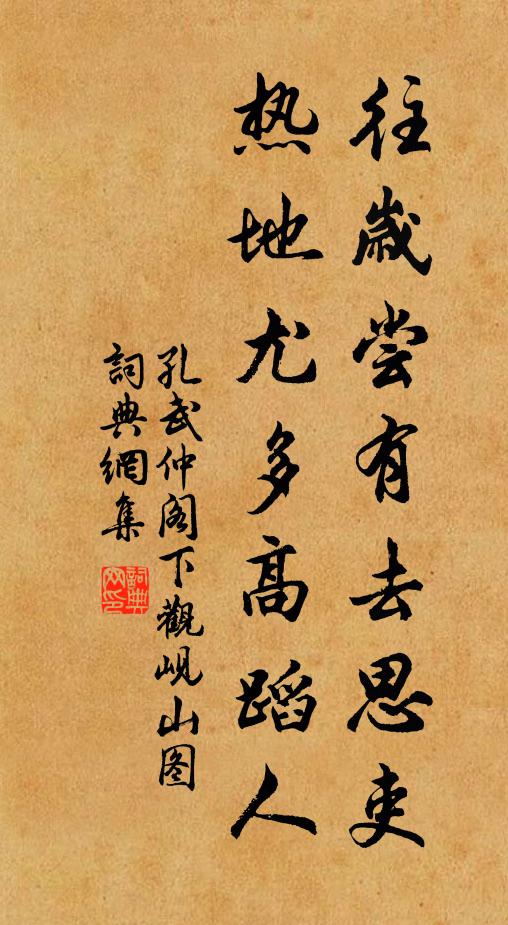 往歲尝有去思吏
热地尤多高蹈人
孔武仲阁下觀岘山图
詞典網集
詞典网印